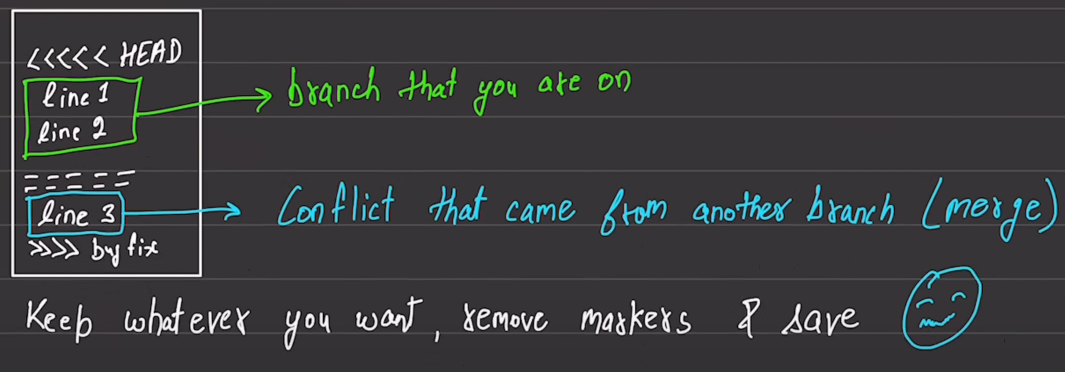 <<<<< HEAD
line 1
line 2
branch that you are on
=====
line 3
Conflict that came from another branch (merge)
>>>> bug fix
Keep whatever you want, remove markers & save